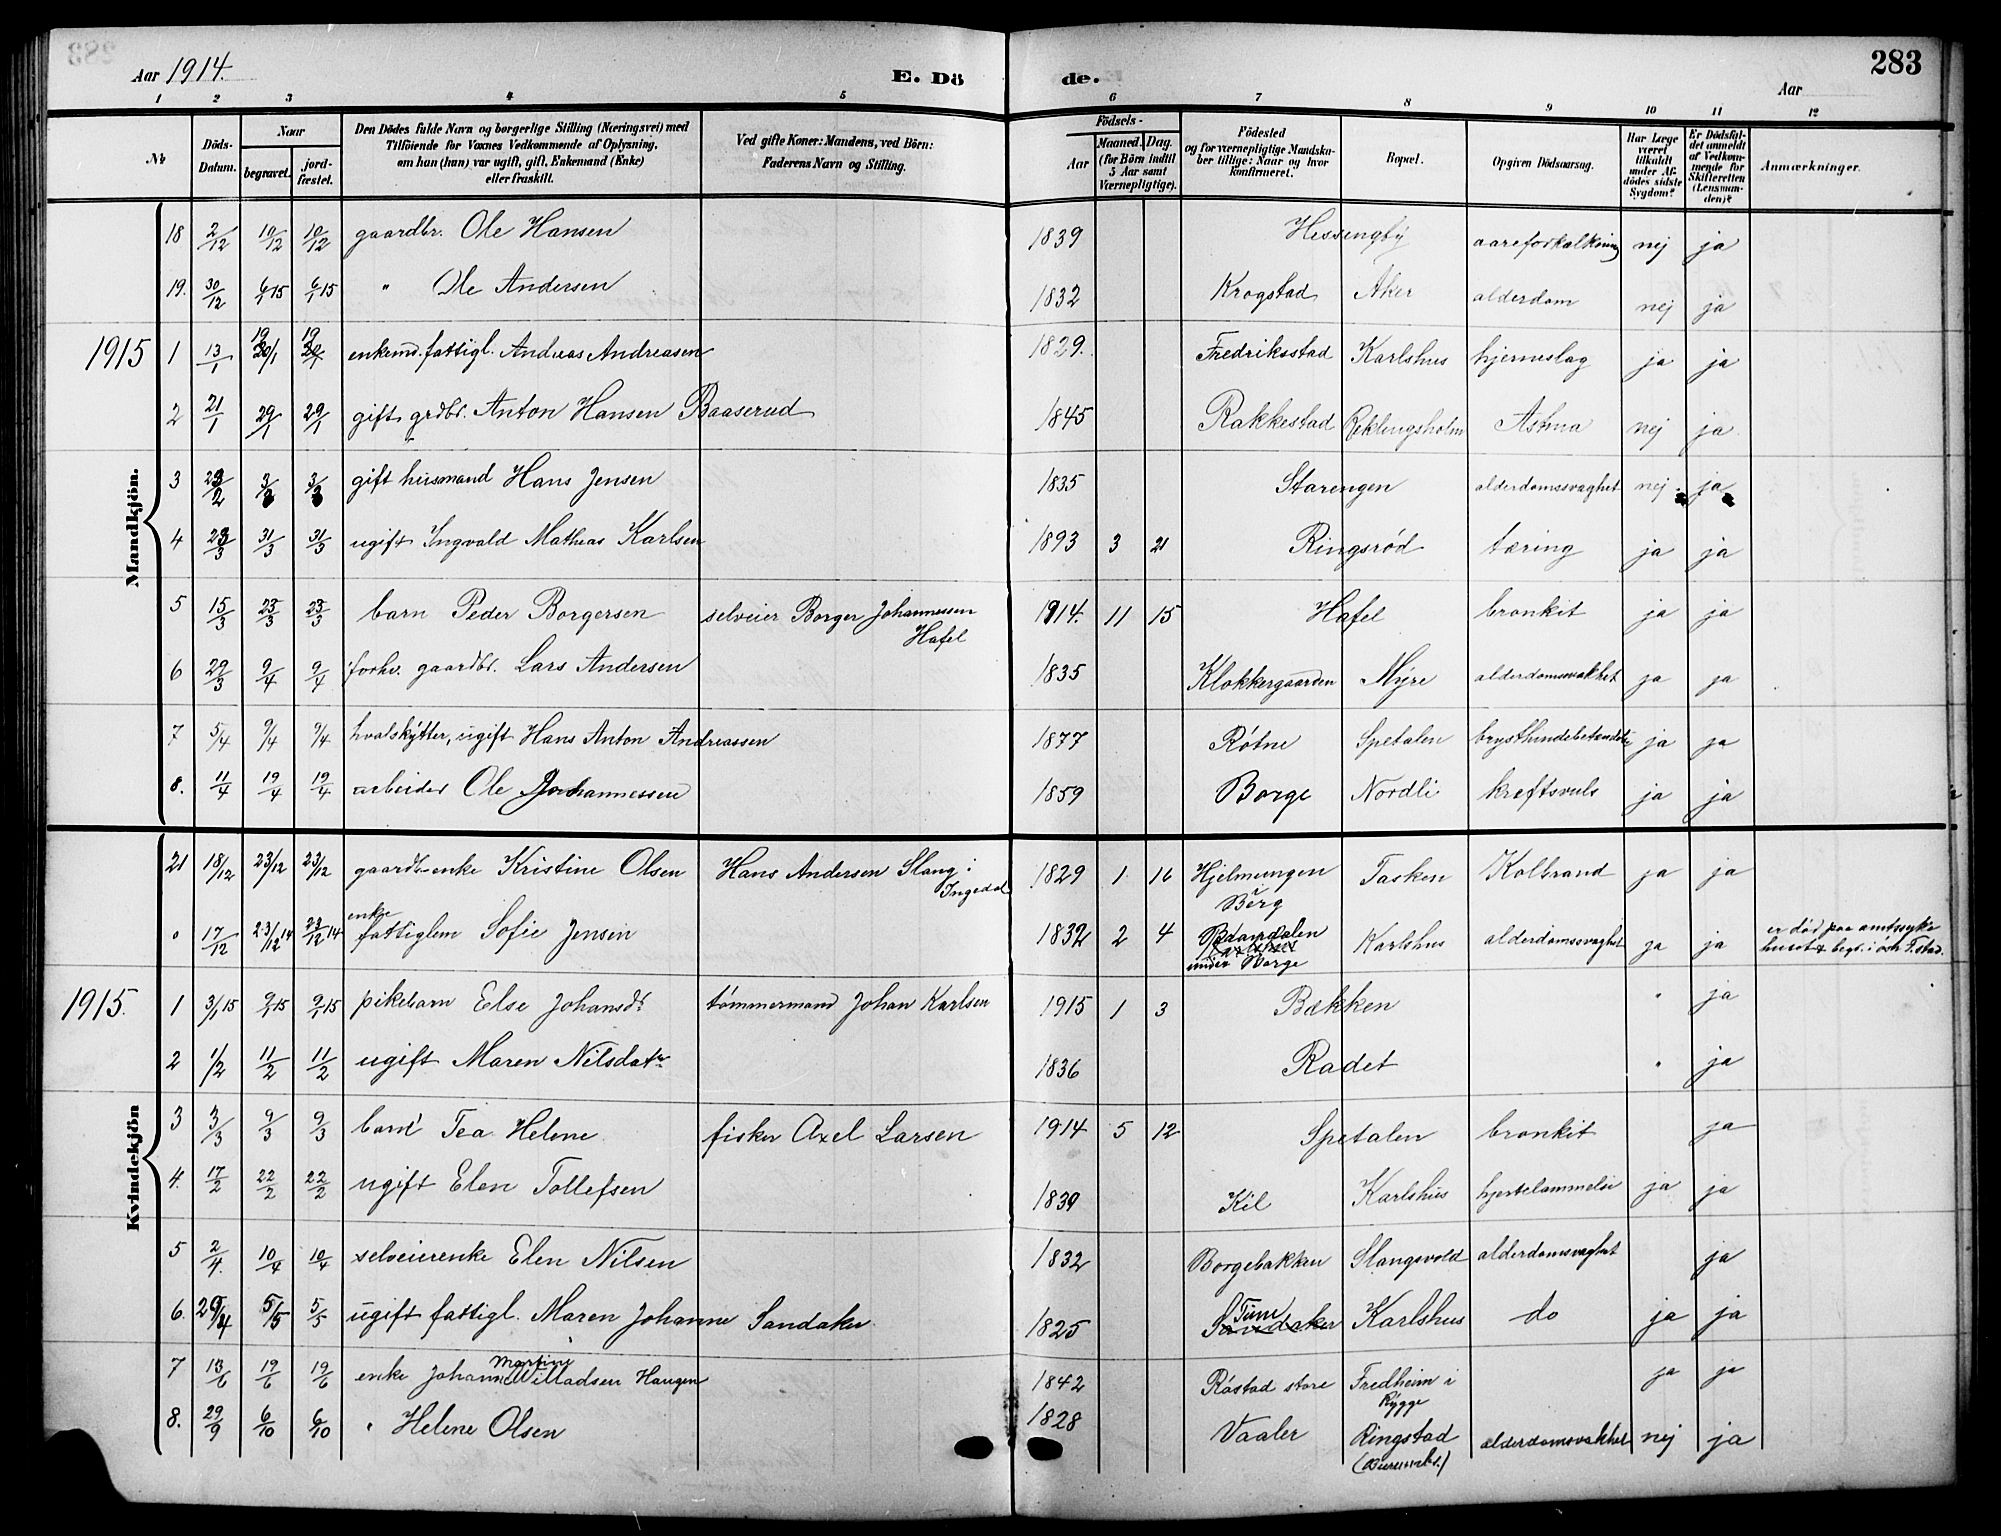 Aar 1914.
E. Dö
de.
Aar
283
1 2 3 4 5 6 7 8 9 10 11 12
No
Döds-Datum.
Naar begravet. jord-fæstet.
Den Dödes fulde Navn og borgerlige Stilling (Næringsvei) med
Tilföiende for Voxnes Vedkommende af Oplysning,
om han (hun) var ugift, gift, Enkemand (Enke)
eller fraskilt.
Ved gifte Koner: Mandens, ved Börn:
Faderens Navn og Stilling.
Födsels-
Aar Maaned. Dag.
(for Börn indtil
5 Aar samt
Værnepligtige).
Födested
og for værnepligtige Mandska-
ber tillige: Naar og hvor
konfirmeret.
Bopæl.
Opgiven Dödsaarsag.
Har Læge
været
tilkaldt
under Af-
dödes sidste
Sygdom?
Er Dödsfal-
det anmeldt
af Vedkom-
mende for
Skifteretten
(Lensman-
den)?
Anmærkninger.
Mandkjön.
18 2/12 10/12 10/12 gaardbr. Ole Hansen 1839 Hessengby aareforkalkning nej ja
19. 30/12 6/1 15 6/1 15 " Ole Andersen 1832 Krogstad Aker alderdom nej ja
1915 1 13/1 19/1 19/1 enkemd. fattigl. Andreas Andreasen 1829. Fredriksstad Karlshus hjerneslag ja ja
2 21/1 29/1 29/1 gift grdbr. Anton Hansen Baaserud 1845 Rakkestad Reklingsholm Astma nej ja
3 3/3 3/3 gift husmand Hans Jensen 1835 Starengen alderdomssvaghet nej ja
4 31/3 31/3 ugift Ingvald Mathias Karlsen 1893 3 21 Ringsrød tæring ja ja
5 15/3 23/3 23/3 barn Peder Borgersen selveier Borger Johannessen
Hafel 1914. 11 15 Hafel bronkit ja ja
6 29/3 9/4 9/4 forhv. gaardbr. Lars Andersen 1835 Klokkergaarden Myre alderdomsvakhet ja ja
7 5/4 9/4 9/4 hvalskytter, ugift Hans Anton Andreassen 1877 Røtne Spetalen brysthindebetændelse ja ja
8. 11/4 19/4 19/4 arbeider Ole Johannessen 1859 Borge Nordli kreftsvuls ja ja
Kvindekjön
21 18/12 23/12 23/12 gaardb-enke Kristine Olsen Hans Andersen Slang i
Ingedal 1829 1 16 Hjelmungen
i Berg Tasken Kolbrand ja ja
" 17/12 23/12 14 23/12 14 enke
fattiglem Sofie Jensen 1832 2 4
under Borge Karlshus alderdomssvaghet ja ja er død paa amtssyke
huset & begr. i
1915. 1 3/1 15 9/1 15 9/1 15 pikebarn Else Johansdr tømmermand Johan Karlsen 1915 1 3 Bækken " ja
2 1/2 11/2 11/2 ugift Maren Nilsdatr 1836 Radet " ja
3 3/3 9/3 9/3 barn Tea Helene fisker Axel Larsen 1914 5 12 Spetalen bronkit ja
4. 17/2 22/2 22/2 ugift Elen Tollefsen 1839 Kil Karlshus hjertelammelse ja ja
5 2/4. 10/4 10/4 selveierenke Elen Nilsen 1832 Borgebakken Slangsvold alderdomssvaghet ja
6. 29/4 5/5 5/5 ugift fattigl. Maren Johanne Sandaker 1825 Tune
Sandaker Karlshus do ja ja
7 13/6 19/6 19/6 enke Johanne Martine
Willadsen Haugen 1842 Røstad store Fredheim i
Rygge ja ja
8. 29/9 6/10 6/10 " Helene Olsen 1828 Vaaler Ringstad alderdomsvakhet nej ja